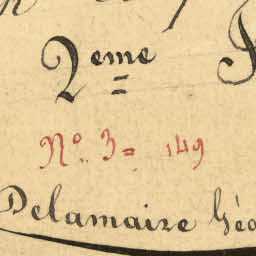 2eme
No. 3 = 149
Delamaire Géo